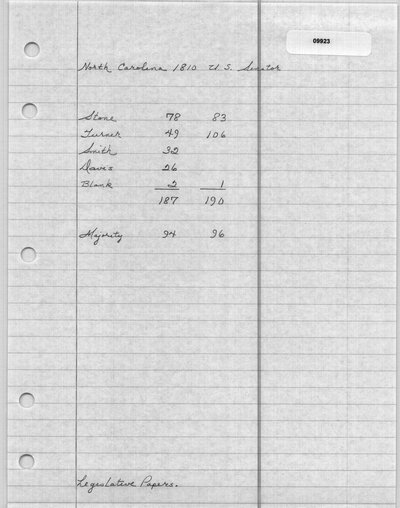 09923
North Carolina 1810 U.S. Senator
Stone 78 83
Turner 49 106
Smith 32
Davis 26
Blank 2 1
187 190
Majority 94 96
Legislative Papers.